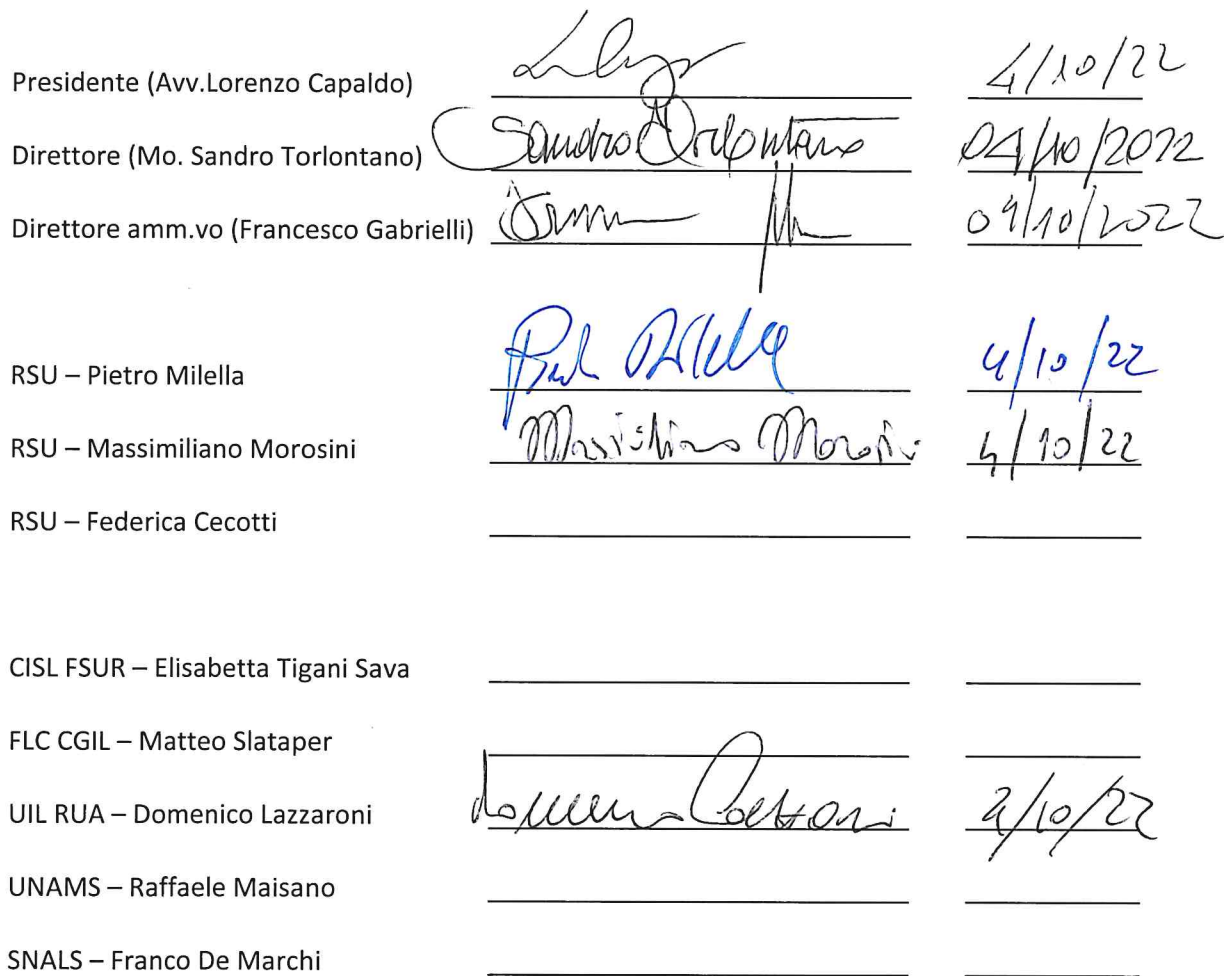 Presidente (Avv.Lorenzo Capaldo) 4/10/22
Direttore (Mo. Sandro Torlontano) Sandro Torlontano 04/10/2022
Direttore amm.vo (Francesco Gabrielli) 04/10/2022
RSU – Pietro Milella 4/10/22
RSU – Massimiliano Morosini Massimiliano Morosini 4/10/22
RSU – Federica Cecotti
CISL FSUR – Elisabetta Tigani Sava
FLC CGIL – Matteo Slataper
UIL RUA – Domenico Lazzaroni 4/10/22
UNAMS – Raffaele Maisano
SNALS – Franco De Marchi